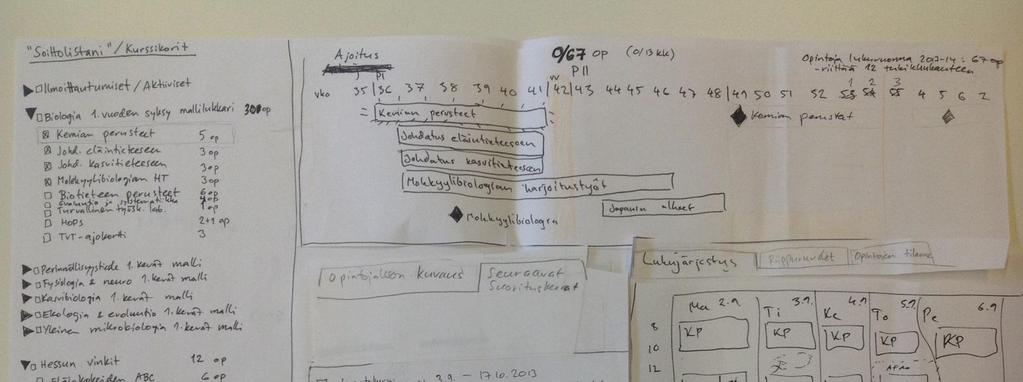 "Soittolistani" / Kurssikorit
Ilmoittautumiset / Aktiiviset
Biologia 1. vuoden syksy mallilukkari 30 op
Kemian perusteet 5 op
Johd. eläintieteeseen 3 op
Johd. kasvitieteeseen 3 op
Molekyylibiologian HT 3 op
Biotieteen perusteet 6 op
Evoluutio ja systematiikka
Turvallinen työsk. lab. 1 op
HOPS 2+1 op
TVT-ajokortti 3
Perinnöllisyystiede 1. kevät malli
Fysiologia & neuro 1. kevät malli
Kasvibiologia 1. kevät malli
Ekologia & evoluutio 1. kevät malli
Yleinen mikrobiologia 1. kevät malli
Hessun vinkit 12 op
Eläinkokeiden ABC 6 op
Ajoitus
0/67 op (0/13 kk)
Opintoja lukuvuonna 2013-14: 67 op
-riittää 12 tukikuukauteen
PI
PII
vko 35 36 37 38 39 40 41 42 43 44 45 46 47 48 49 50 51 52
2 3
4 5 6
Kemian perusteet
Kemian perusteet
Johdatus eläintieteeseen
Johdatus kasvitieteeseen
Molekyylibiologian harjoitustyöt
Japanin alkeet
Molekyylibiologia
Opintojakson kuvaus
Seuraavat
Suorituskerrat
3.9. – 17.10.2013
Lukujärjestys
Riippuvuudet
Opintojen tilanne
Ma 2.9. Ti 3.9. Ke 4.9 To 5.9 Pe 6.9
8 KP KP KP KP KP
10
12